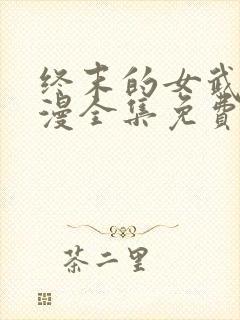 终末的女武
漫全集免费
茶二里